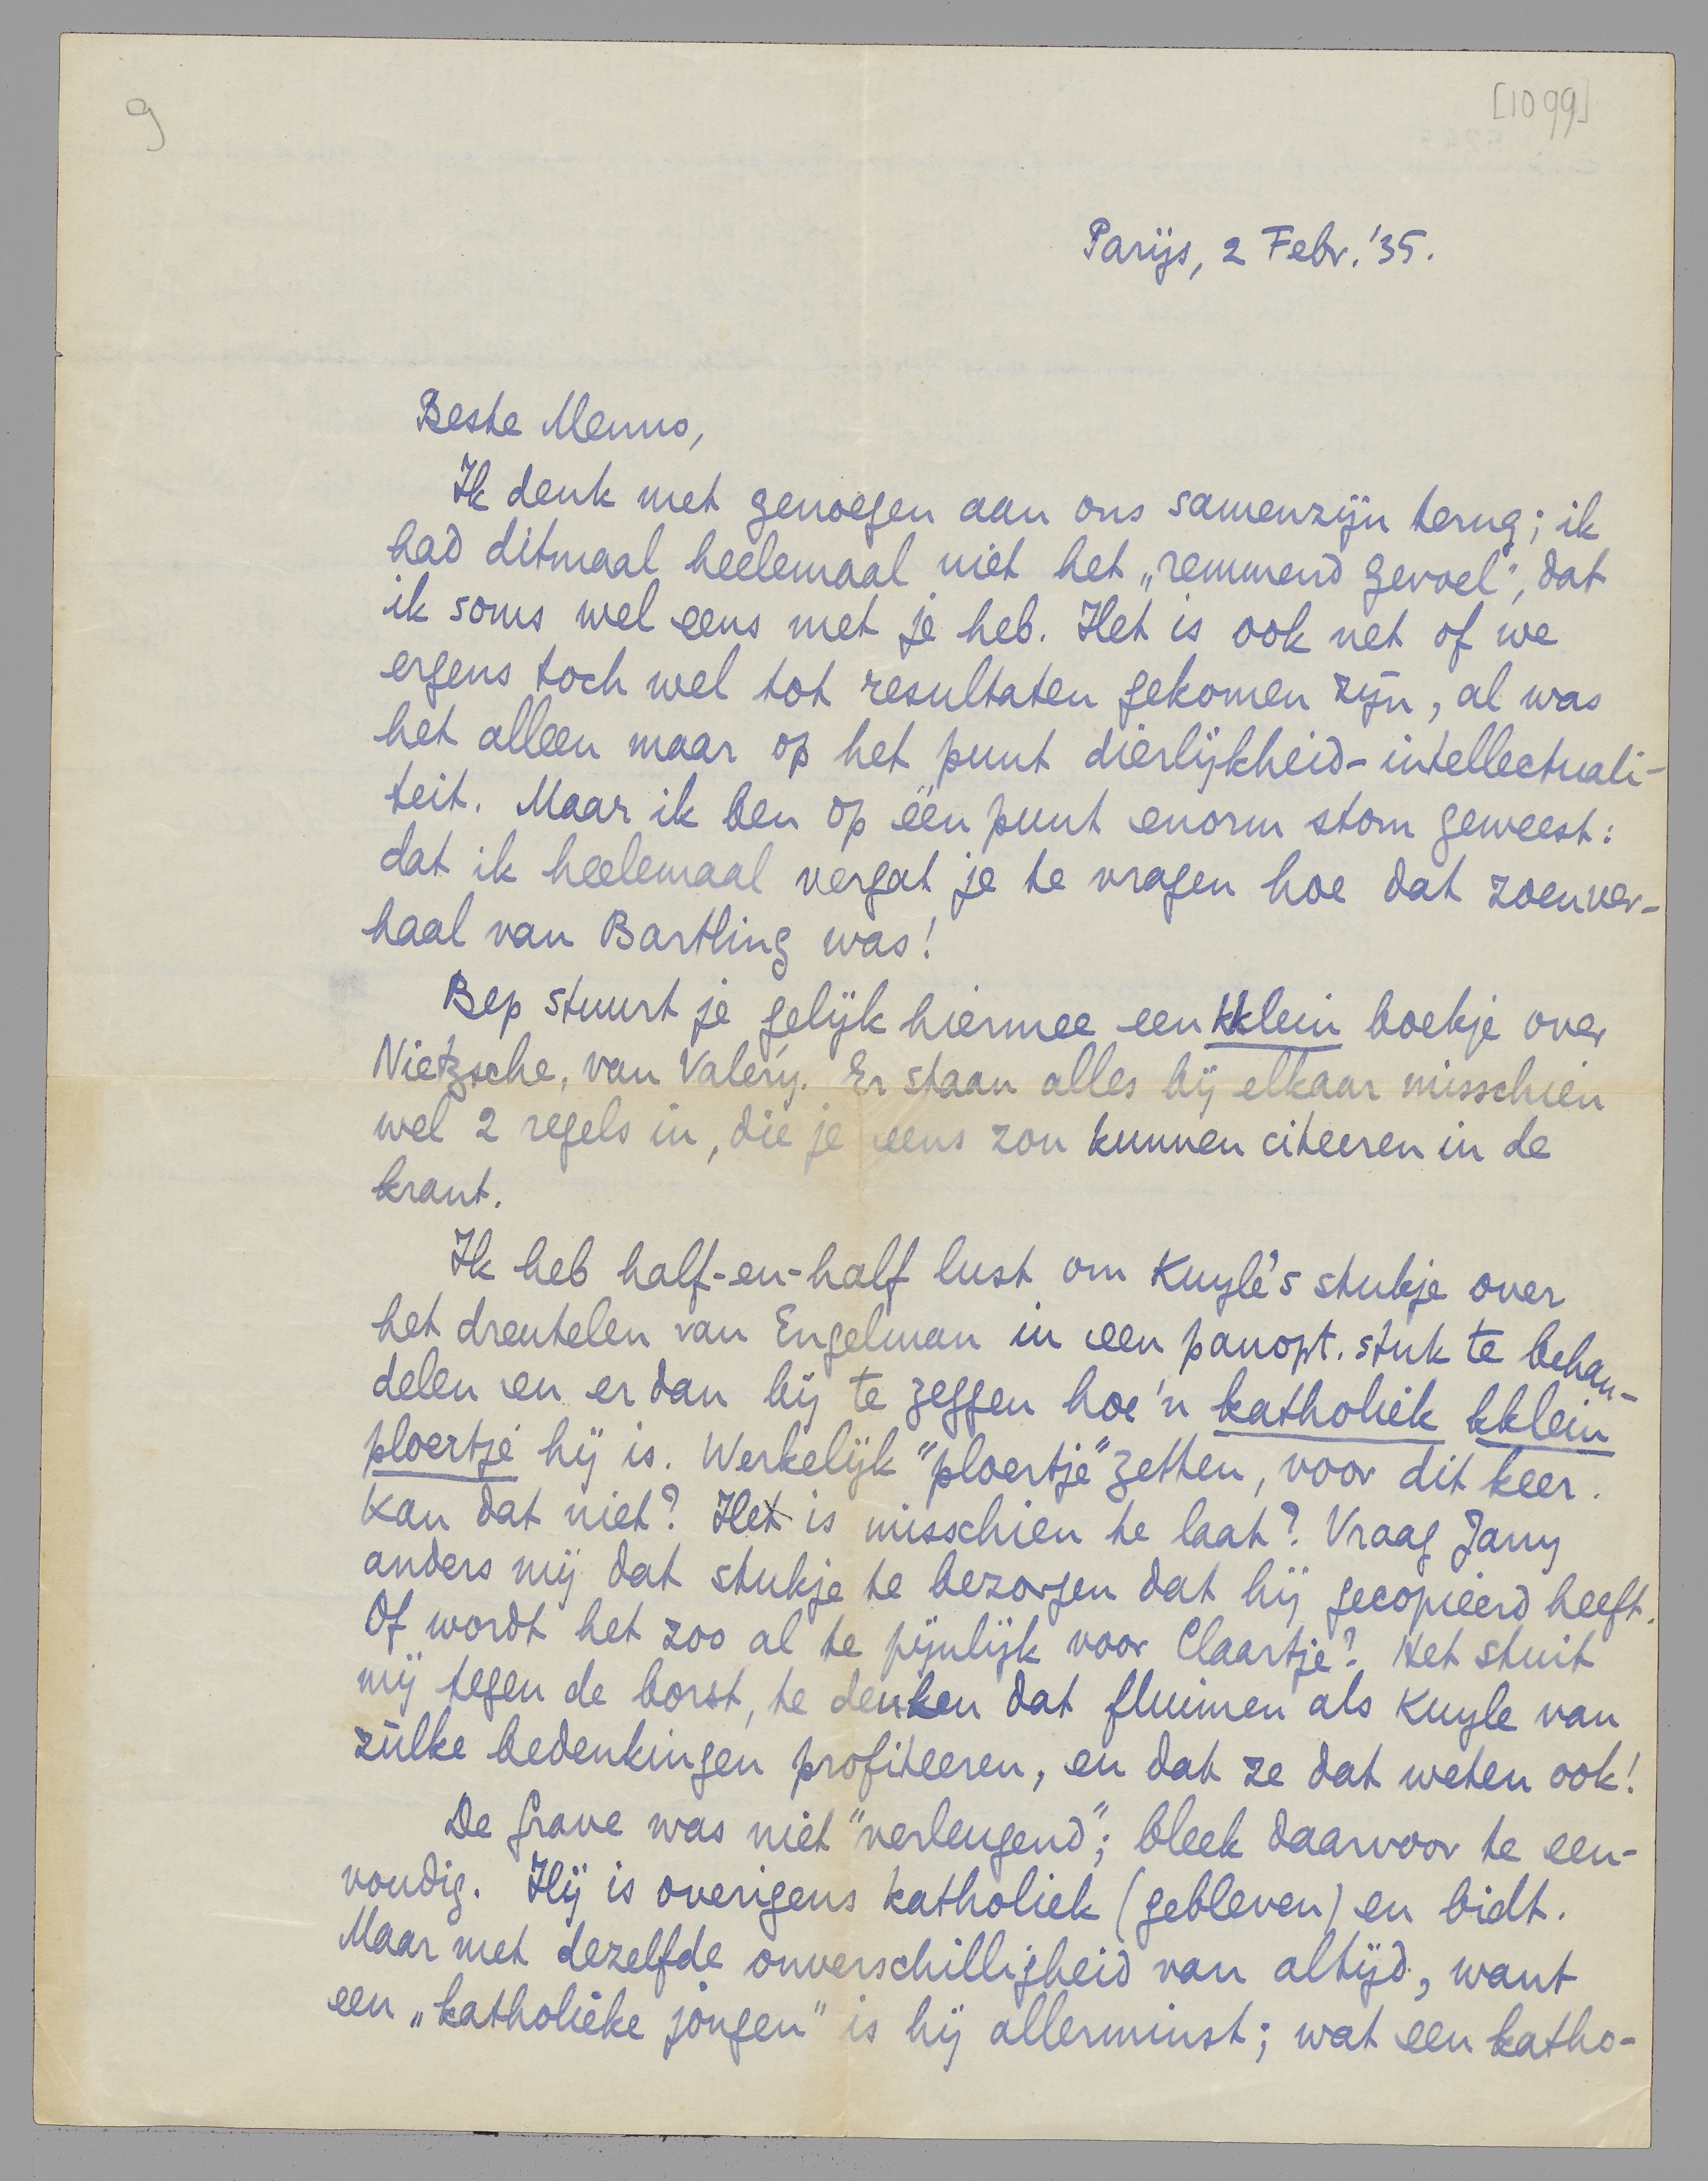 9
[1099]
Parijs, 2 Febr. '35.
Beste Menno,
Ik denk met genoegen aan ons samenzijn terug; ik
had ditmaal heelemaal niet het „remmend gevoel", dat
ik soms wel eens met je heb. Het is ook net of we
ergens toch wel tot resultaten gekomen zijn, al was
het alleen maar op het punt dierlijkheid-intellectuali-
teit. Maar ik ben op één punt enorm stom geweest:
dat ik heelemaal vergat je te vragen hoe dat zoenver-
haal van Bartling was!
Bep stuurt je gelijk hiermee een kklein boekje over
Nietzsche, van Valéry. Er staan alles bij elkaar misschien
wel 2 regels in, die je eens zou kunnen citeeren in de
krant.
Ik heb half-en-half lust om Kuyle's stukje over
het drentelen van Engelman in een panopt. stuk te behan-
delen en er dan bij te zeggen hoe'n katholiek kklein
ploertje hij is. Werkelijk "ploertje" zetten, voor dit keer.
Kan dat niet? Het is misschien te laat? Vraag Jany
anders mij dat stukje te bezorgen dat hij gecopieerd heeft.
Of wordt het zoo al te pijnlijk voor Claartje? Het stuit
mij tegen de borst, te denken dat fluimen als Kuyle van
zulke bedenkingen profiteeren, en dat ze dat weten ook!
De Grave was niet "verleugend"; bleek daarvoor te een-
voudig. Hij is overigens katholiek (gebleven) en bidt.
Maar met dezelfde onverschilligheid van altijd, want
een „katholieke jongen" is hij allerminst; wat een katho-